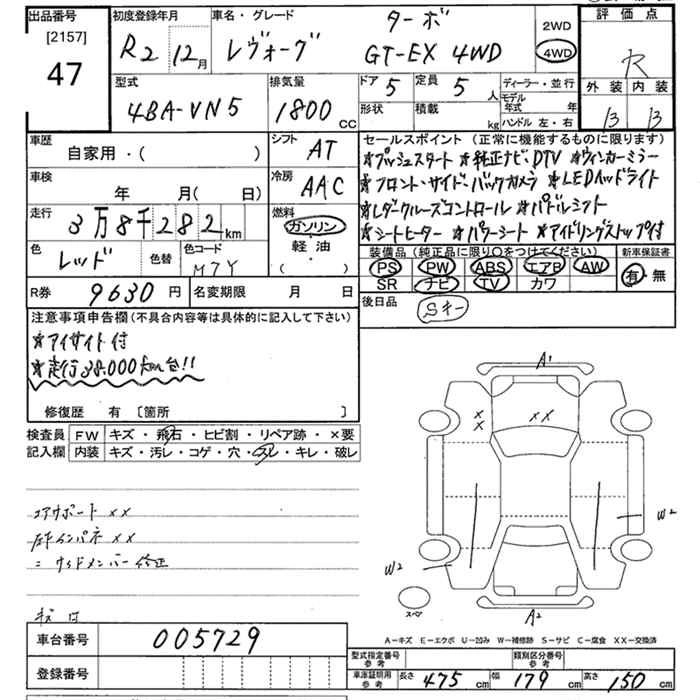 出品番号
[2157]
47
初度登録年月
R2 12月
車名・グレード
ターボ
レヴォーグ GT-EX 4WD
2WD
4WD
評価点
R
外装 内装
B B
型式
4BA-VN5
排気量
1800 CC
ドア 5
定員 5 人
形状
積載 kg
ディーラー・並行
モデル年式 年
ハンドル 左・右
車歴
自家用・( )
シフト
AT
車検
年 月( 日)
冷房
AAC
走行
3万8千282km
燃料
ガソリン
軽油
・( )
色
レッド
色替
色コード
M7Y
R券 9630円
名変期限 月 日
セールスポイント (正常に機能するものに限ります)
★プッシュスタート ★純正ナビ、DTV ★ウィンカーミラー
★フロント・サイド・バックカメラ ★LEDヘッドライト
★レーダークルーズコントロール ★パドルシフト
★シートヒーター ★パワーシート ★アイドリングストップ付
装備品 (純正品に限り○をつけてください)
PS PW ABS エアB AW
SR ナビ TV カワ
新車保証書
有・無
後日品
Sキー
注意事項申告欄(不具合内容等は具体的に記入して下さい)
★アイサイト付
★走行38,000km台!!
修復歴 有 [箇所 ]
検査員記入欄
FW キズ・飛石・ヒビ割・リペア跡・×要
内装 キズ・汚レ・コゲ・穴・スレ・キレ・破レ
コアサポート ××
左右インパネ ××
〃 サイドメンバー 修正
A1
×
×
××
W2
W2
スペア
A2
A-キズ E-エクボ U-凹み W-補修跡 S-サビ C-腐食 XX-交換済
車台番号 005729
登録番号
型式指定番号 参考
類別区分番号 参考
車庫証明用 参考 長さ 475cm 幅 179cm 高さ 150cm